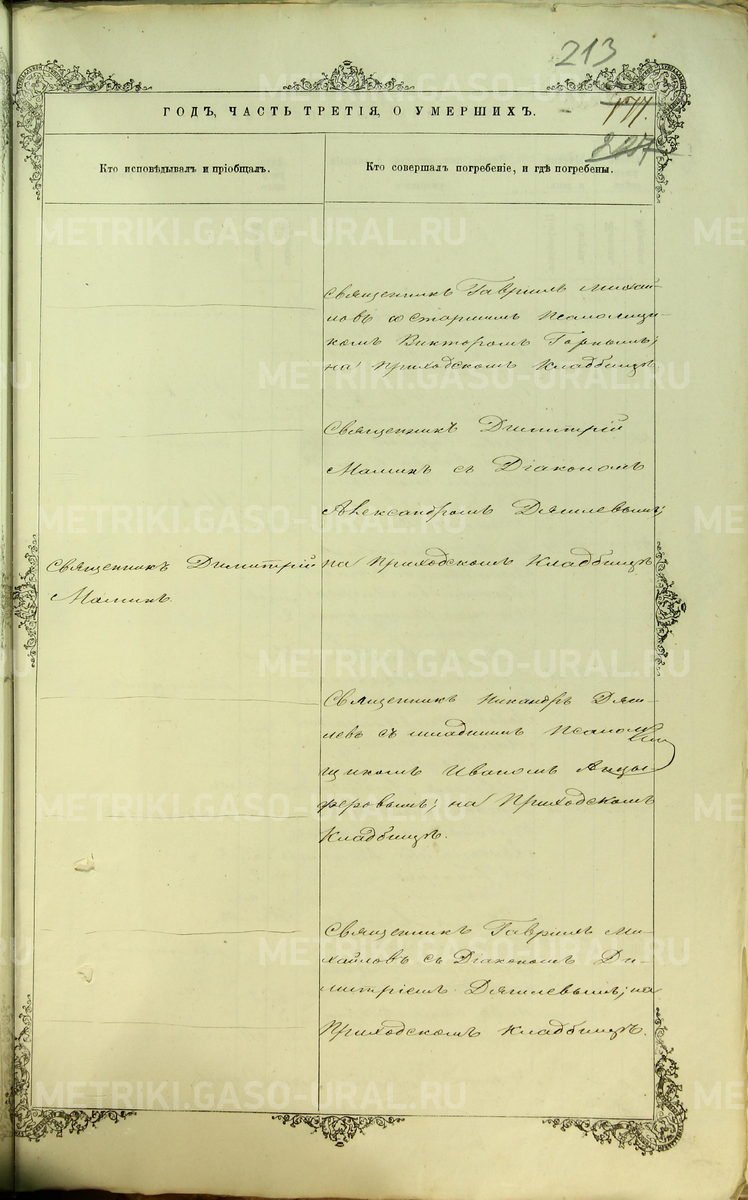 213
ГОДЪ, ЧАСТЬ ТРЕТІЯ, О УМЕРШИХЪ.
Кто исповѣдывалъ и пріобщалъ.
Кто совершалъ погребеніе, и гдѣ погребены.
Священникъ Гавріилъ Михай-
ловъ со старшимъ Псаломщи-
комъ Викторомъ
на Приходскомъ Кладбищѣ
Священникъ Димитрій
Маминъ съ Діакономъ
Александромъ Дягилевымъ;
на Приходскомъ Кладбищѣ
Священникъ Димитрій
Маминъ.
Священникъ Никандръ Дяги-
левъ съ младшимъ Псалом
щикомъ Иваномъ Анцы
феровымъ; на Приходскомъ
Кладбищѣ.
Священникъ Гавріилъ Ми-
хайловъ съ Діакономъ Ди-
митріемъ Дягилевымъ; на
Приходскомъ Кладбищѣ.
METRIKI.GASO-URAL.RU